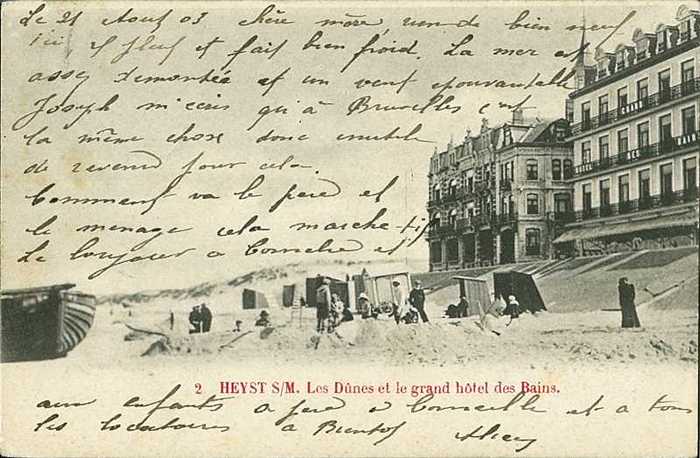 Le 21 Aout 03 chère mère rien de bien neuf
ici il pleut et fait bien froid. La mer est
assez demontée et un vent epouvantable
Joseph m'ecris qu'à Bruxelles c'est
la même chose donc inutile
de revenir pour cela.
Comment va le pere et
le menage cela marche-t-il
Le bonjour a Corneille et
GRAND
HOTEL DES BAINS
2 HEYST S/M. Les Dûnes et le grand hôtel des Bains.
aux enfants a pere a Corneille et a tous
les locataires a Bientot